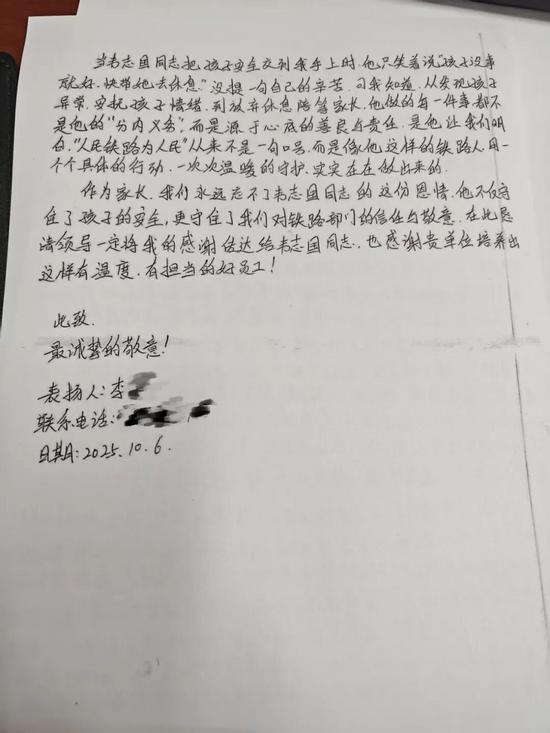 当韦志国同志把孩子安全交到我手上时，他只笑着说“孩子没事
就好，快带她去休息。”没提一句自己的辛苦。可我知道，从发现孩子
异常，安抚孩子情绪，到放弃休息陪等家长，他做的每一件事都不
是他的“分内义务”，而是源于心底的善良与责任，是他让我们明
白，“人民铁路为人民”从来不是一句口号，而是像他这样的铁路人，用一
个个具体的行动，一次次温暖的守护，实实在在做出来的。
作为家长，我们永远忘不了韦志国同志的这份恩情，他不仅守
住了孩子的安全，更守住了我们对铁路部门的信任与敬意，在此恳
请领导一定将我的感谢传达给韦志国同志，也感谢贵单位培养出
这样有温度、有担当的好员工！
此致
最诚挚的敬意！
表扬人：李
联系电话：
日期：2025.10.6.